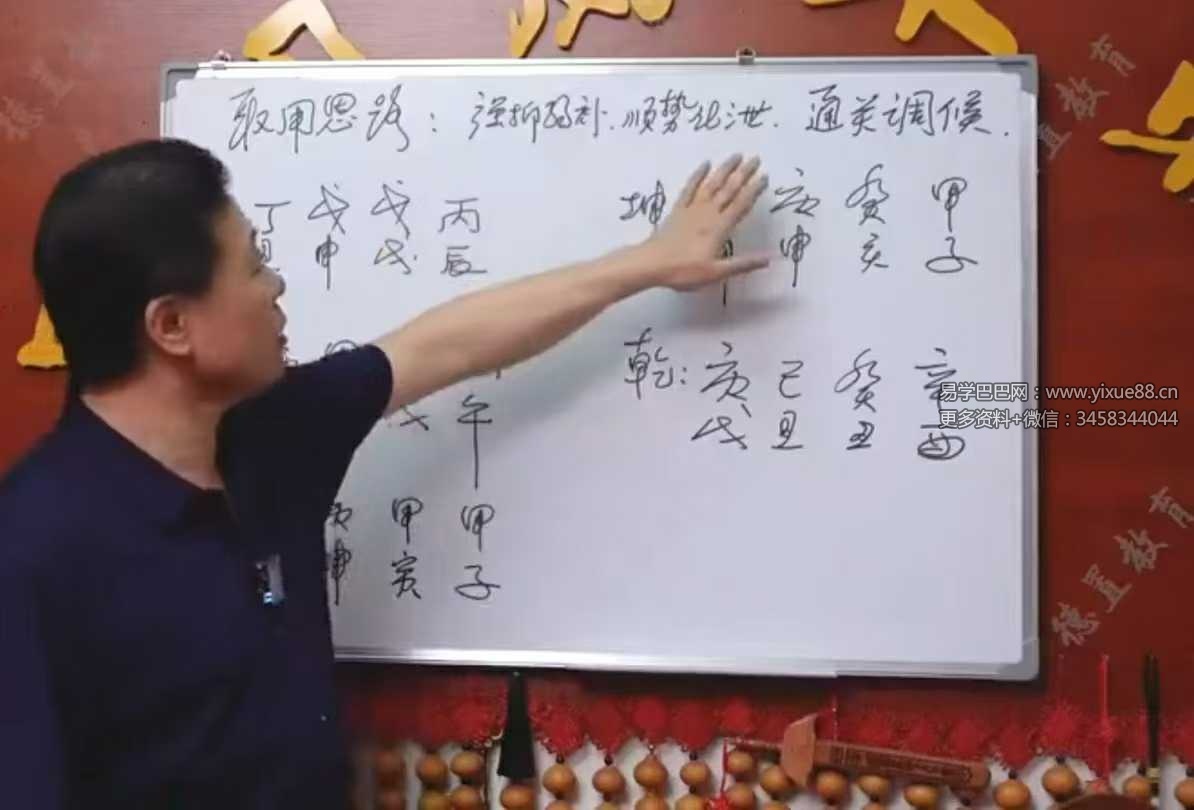 取用思路：强抑弱补.顺势化泄.通关调候.
丁 戊 戊 丙
申 戌 辰
坤 庚 癸 甲
申 亥 子
乾：庚 己 癸 辛
戌 丑 丑 酉
午
甲 甲
寅 子
易学巴巴网：www.yixue88.cn
更多资料+微信：3458344044
德置教育
置教育
德置教育